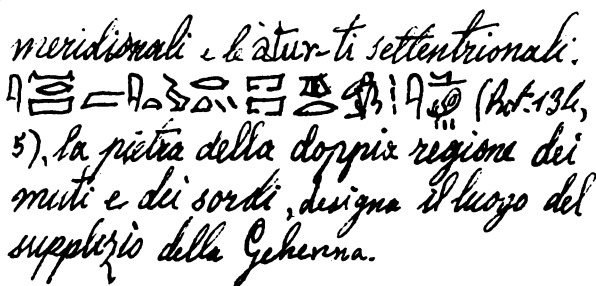 meridionali e le àtur-ti settentrionali.
(Rot. 134,
5), la pietra della doppia regione dei
muti e dei sordi, designa il luogo del
supplizio della Gehenna.